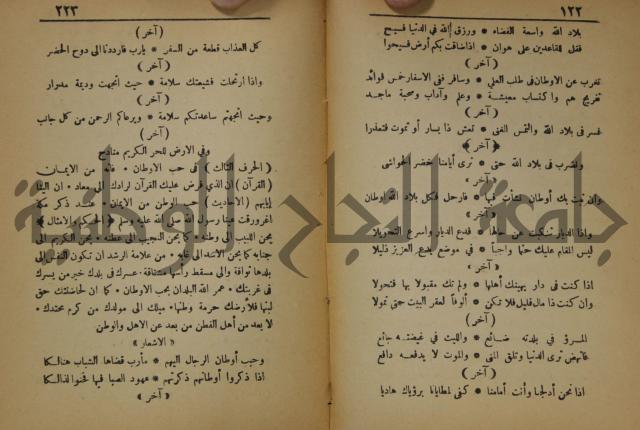 ١٢٢
بلاد الله واسعة الفضاء * ورزق الله في الدنيا فسيح
فقل للقاعدين على هوان * اذا ضاقت بكم أرض فسيحوا
( آخر )
تغرب عن الاوطان في طلب العلى * وسافر ففي الاسفار خمس فوائد
تفريج هم واكتساب معيشة * وعلم وآداب وصحبة ماجد
( آخر )
فسر في بلاد الله والتمس الغنى * تعش ذا يسار أو تموت فتعذرا
( آخر )
ولضرب في بلاد الله حتى * نرى أيامنا بخضر الحواشي
« آخر »
وان نبت بك أوطان نشأت فيها * فارحل فكل بلاد الله أوطان
« آخر »
واذا الديار تنكرت عن حالها * فدع الديار وأسرع التحويلا
ليس المقام عليك حتما واجبا * في موضع يدع العزيز ذليلا
« آخر »
اذا كنت في دار يهينك أهلها * ولم تك مقبولا بها فتحولا
وان كنت ذا مال قليل فلا تكن * ألوفا لعقر البيت حتى تمولا
( آخر )
المرؤ في بلدته ضائع * والليث في غيضته جائع
فانهض ترى الدنيا وتلق المنى * والموت لا يدفعه دافع
( آخر )
اذا نحن أدلجنا وأنت أمامنا * كفى لمطايانا برؤياك هاديا
٢٢٣
( آخر )
كل العذاب قطعة من السفر * يارب فارددنا الى دوح الحضر
( آخر )
واذا ارتحلت فشيعتك سلامة * حيث اتجهت وديمة مدرار
( آخر )
وحيث اتجهتم ساعدتكم سلامة * ويرعاكم الرحمن من كل جانب
( آخر )
وفي الارض للحر الكريم منادح
( الحرف الثالث ) في حب الاوطان * فانه من الايمان
( القرآن ) ان الذي فرض عليك القرآن لرادك الى معاد * ان الينا
إيابهم ( الاحاديث ) حب الوطن من الايمان * ذكر مكة
اغرورقت عينا رسول الله صلى الله عليه وسلم ( الحكم والامثال )
يحن اللبيب الى وطنه * كما يحن النجيب الى عطنه * يحن الكريم الى
جنابه كما يحن الاسد الى غابه * من علامة الرشد ان تكون النفس إلى
بلدها تواقة والى مسقط رأسها مشتاقة * عسرك في بلدك خير من يسرك
في غربتك * عمر الله البلدان بحب الاوطان * كما ان لحاضنتك حق
لبنها فلأرضك حرمة وطنها * ميلك الى مولدك من كرم محتدك *
لا بعد من أهل الفطن من بعد عن الاهل والوطن
« الاشعار »
وحبب أوطان الرجال اليهم * مآرب قضاها الشباب هنالكا
اذا ذكروا أوطانهم ذكرتهم * عهود الصبا فيها فحنوا لذالكا
« آخر »
جامعة النجاح الوطنية